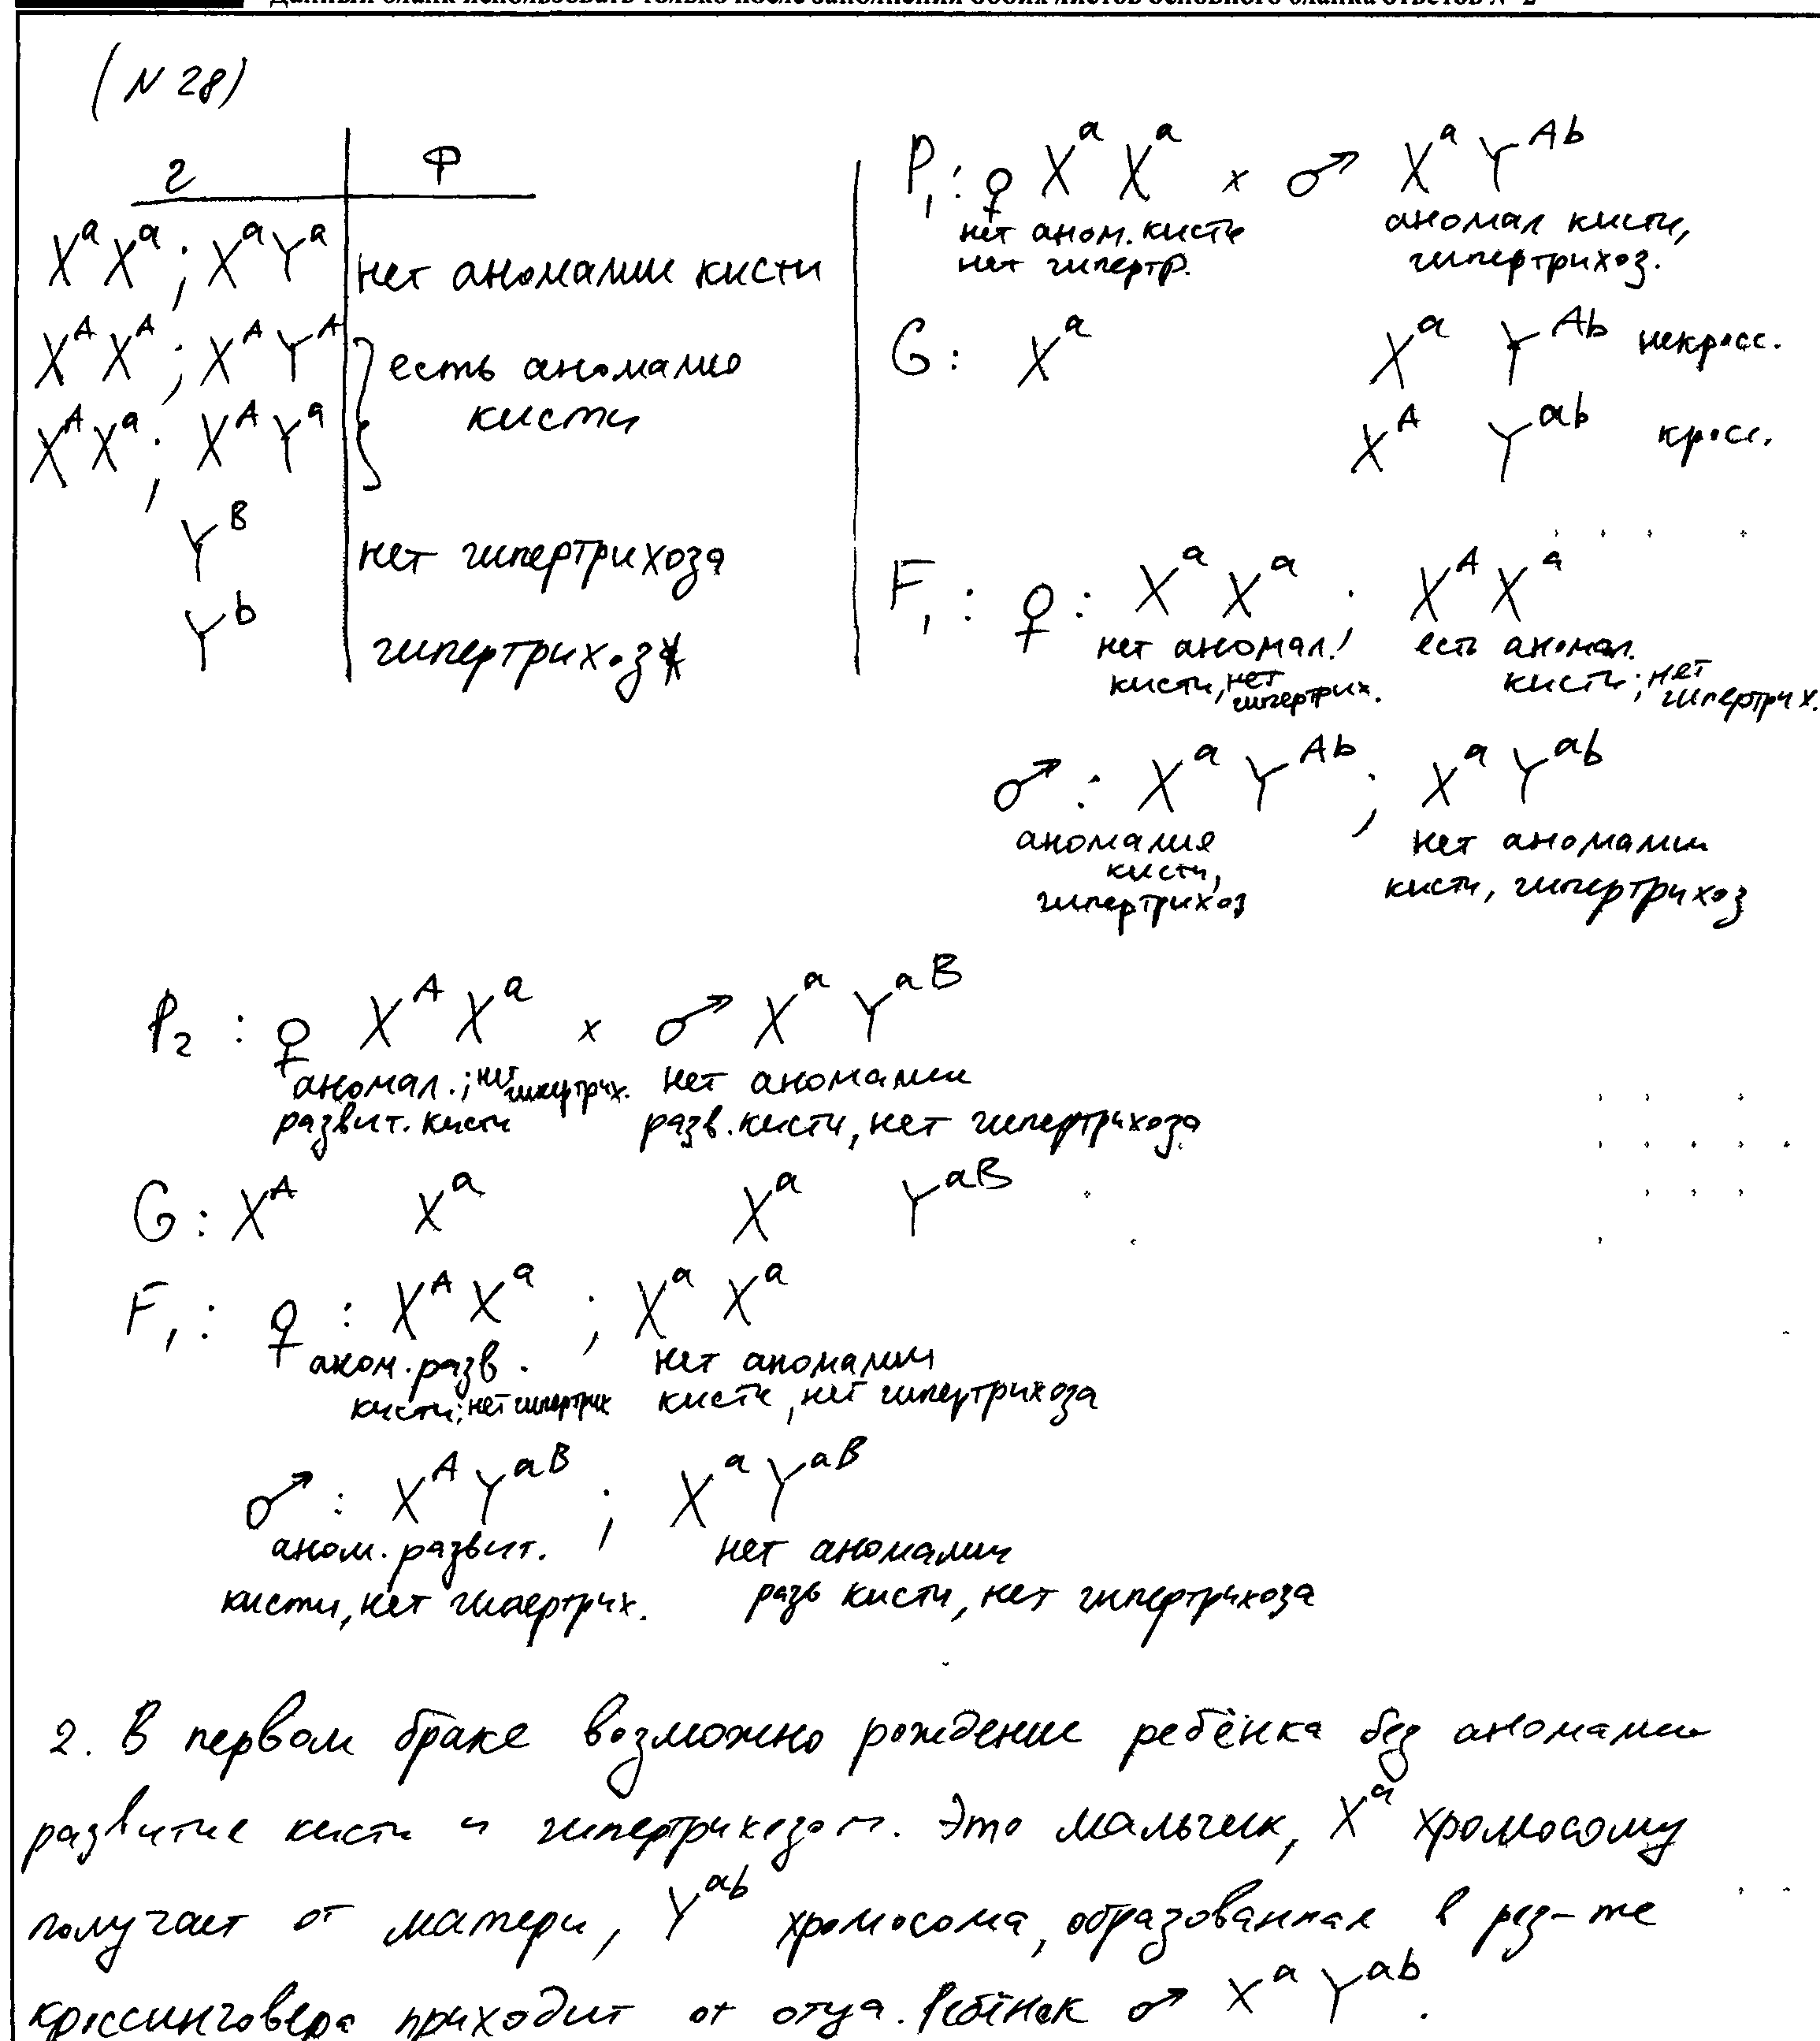 Данный бланк использовать только после заполнения обоих листов основного бланка ответов № 2
(N 28)
г | Ф
X^a X^a ; X^a Y^a | нет аномалии кисти
X^A X^A ; X^A Y^A | есть аномалию
X^A X^a ; X^A Y^a | кисти
Y^B | нет гипертрихоза
Y^b | гипертрихоз
P₁: ♀ X^a X^a x ♂ X^a Y^Ab
нет аном. кисти аномал кисти,
нет гипертр. гипертрихоз.
G: X^a X^a Y^Ab некросс.
X^A Y^ab кросс.
F₁: ♀: X^a X^a ; X^A X^a
нет аномал. есть аномал.
кисти, нет гипертрих. кисти; нет гипертрих.
♂: X^a Y^Ab ; X^a Y^ab
аномалия нет аномалии
кисти, кисти, гипертрихоз
гипертрихоз
P₂: ♀ X^A X^a x ♂ X^a Y^aB
аномал.; нет гипертрих. нет аномалии
развит. кисти разв. кисти, нет гипертрихоза
G: X^A X^a X^a Y^aB
F₁: ♀: X^A X^a ; X^a X^a
аном. разв. нет аномалии
кисти; нет гипертрих кисти, нет гипертрихоза
♂: X^A Y^aB ; X^a Y^aB
аном. развит. нет аномалии
кисти, нет гипертрих. разв кисти, нет гипертрихоза
2. В первом браке возможно рождение ребёнка без аномалии
развитие кисти и гипертрихозом. Это мальчик, X^a хромосому
получает от матери, Y^ab хромосома, образованная в рез-те
кроссинговера приходит от отца. Ребёнок ♂ X^a Y^ab.